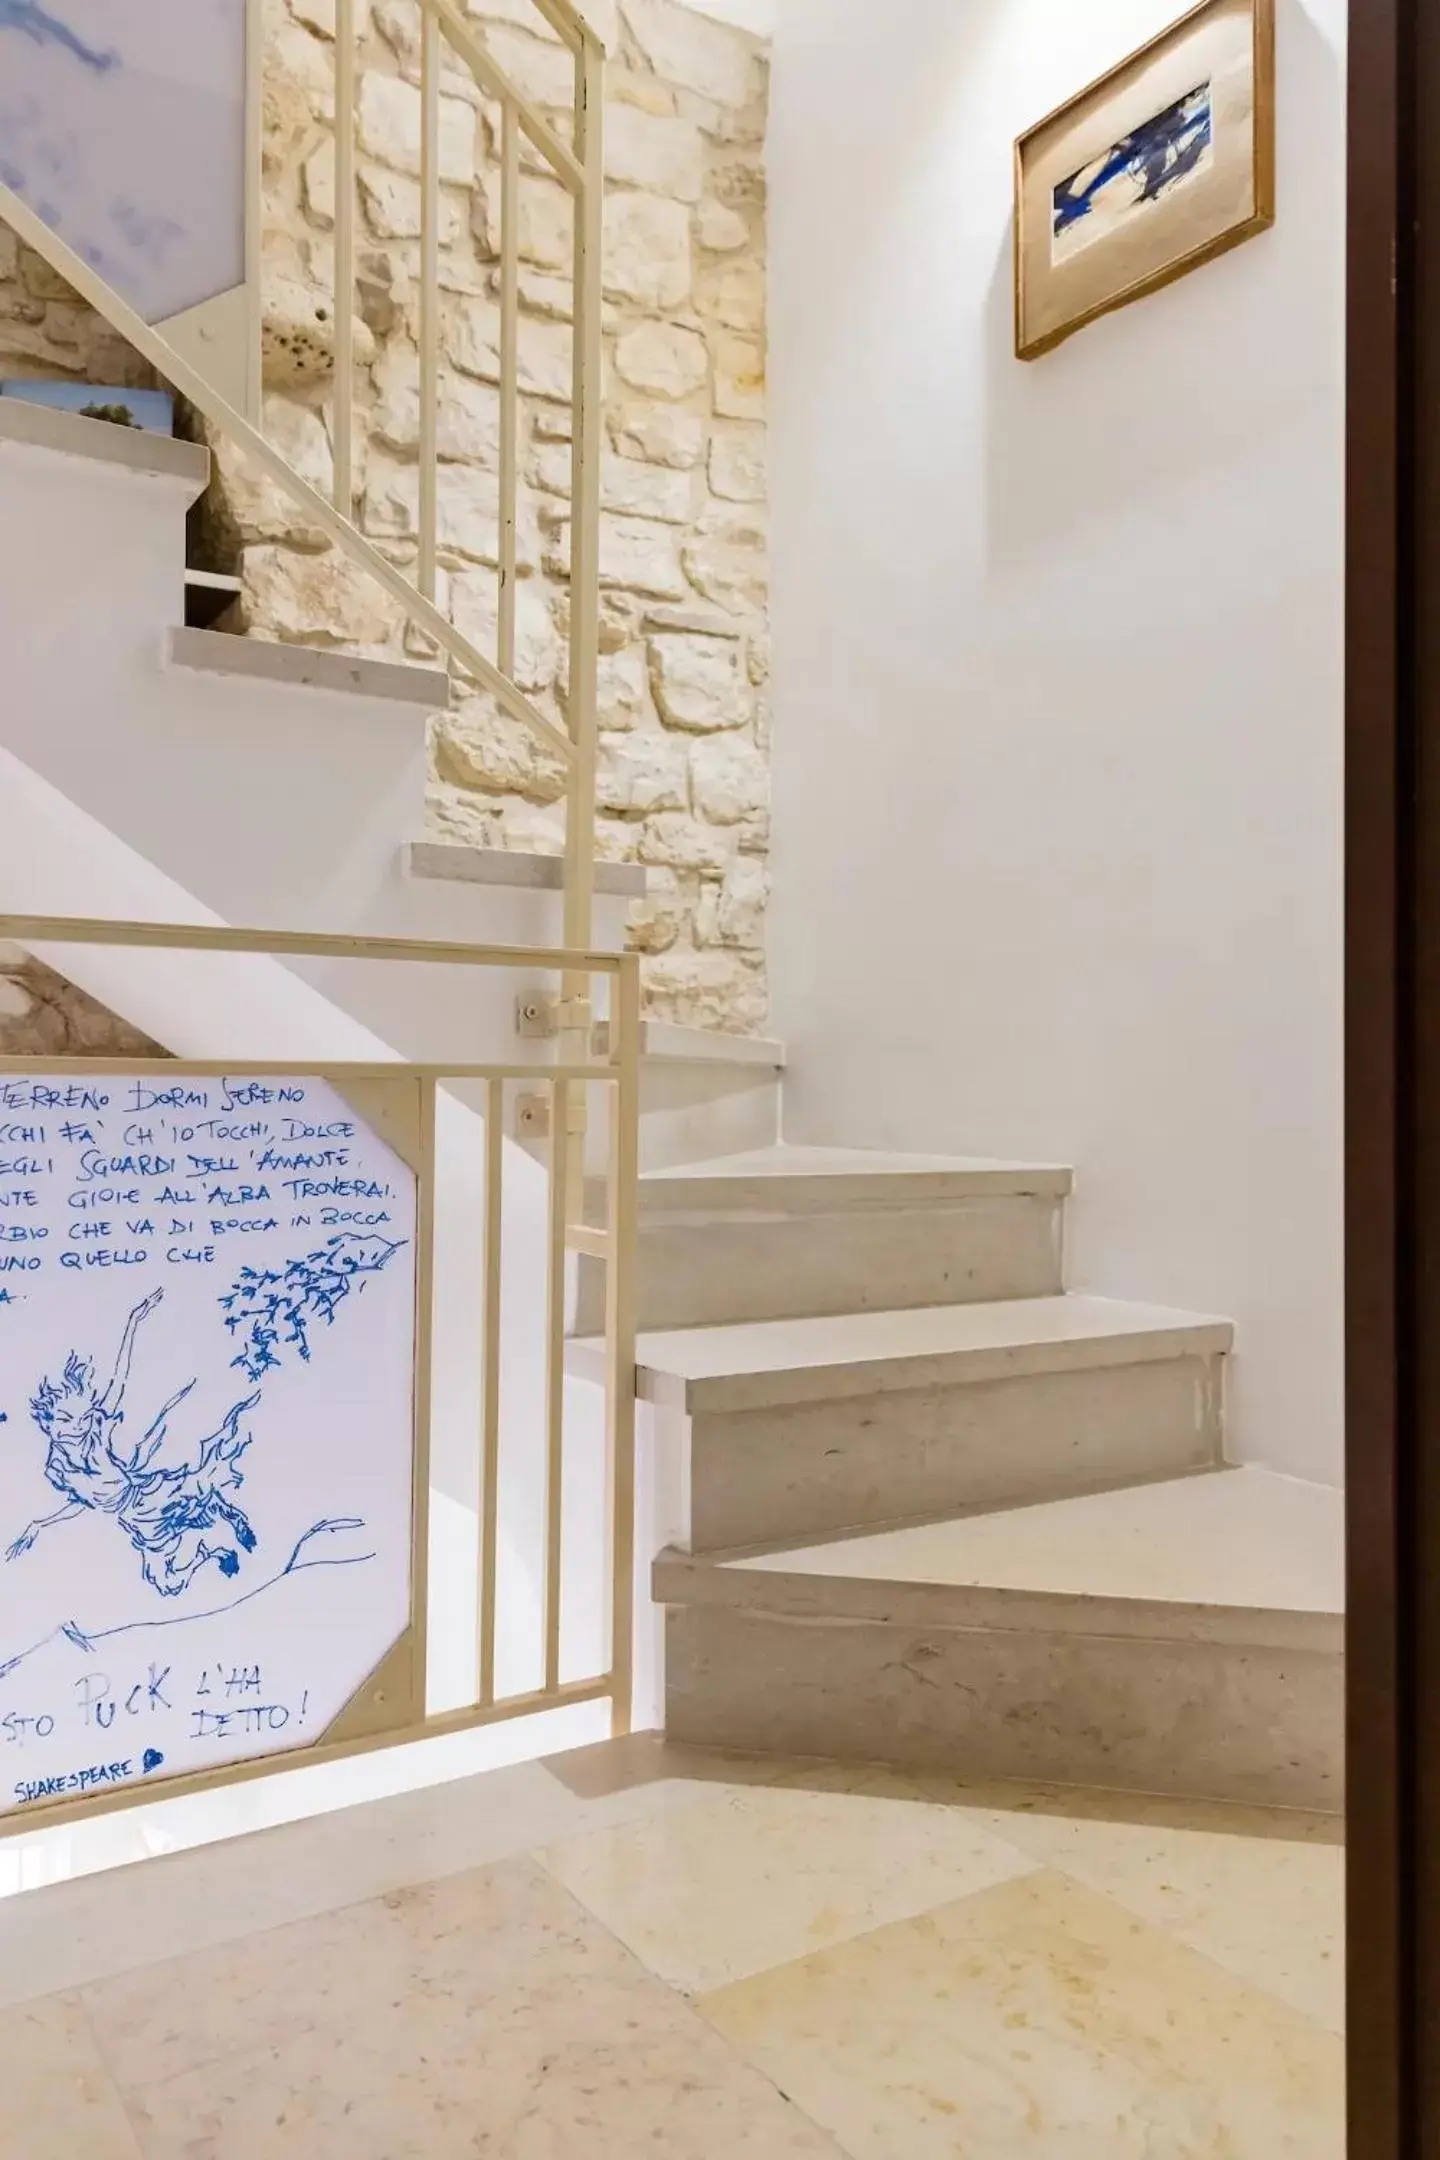 TERRENO DORMI SERENO
CCHI FA' CH'IO TOCCHI, DOLCE
EGLI SGUARDI DELL'AMANTE.
NTE GIOIE ALL'ALBA TROVERAI.
RBIO CHE VA DI BOCCA IN BOCCA
UNO QUELLO CHE
A.
STO PUCK L'HA
DETTO!
SHAKESPEARE